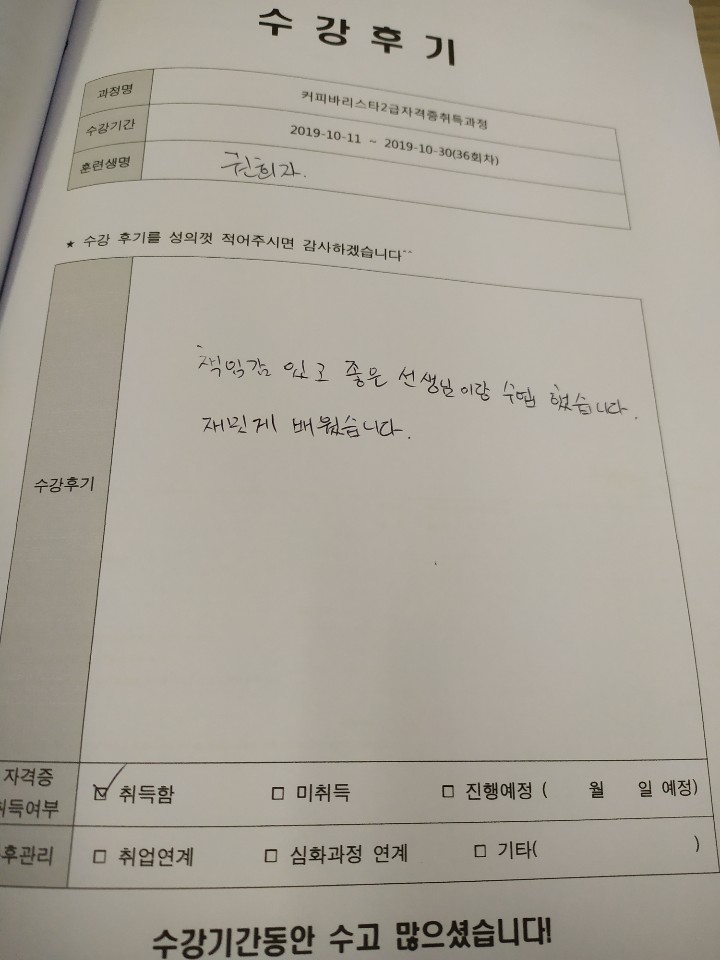 수강후기
과정명 커피바리스타2급자격증취득과정
수강기간 2019-10-11 ~ 2019-10-30(36회차)
훈련생명 권희자.
★ 수강 후기를 성의껏 적어주시면 감사하겠습니다^^
책임감 있고 좋은 선생님이랑 수업 했습니다.
재밌게 배웠습니다.
수강후기
자격증
취득여부 ☑ 취득함 □ 미취득 □ 진행예정 ( 월 일 예정)
후관리 □ 취업연계 □ 심화과정 연계 □ 기타( )
수강기간동안 수고 많으셨습니다!